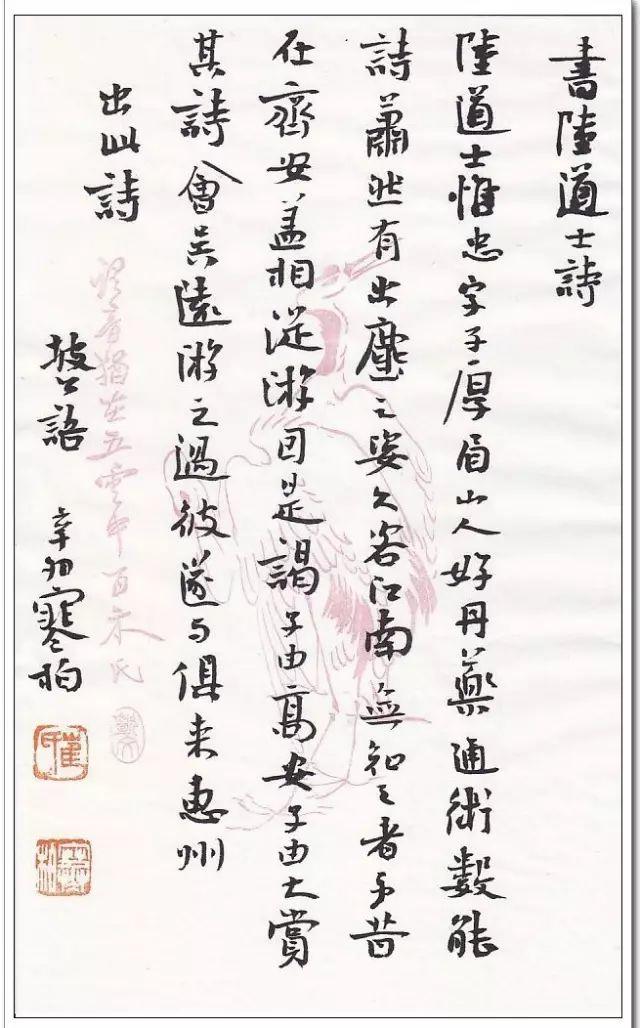 書陸道士詩
陸道士惟忠字子厚眉山人好丹藥通術數能
詩蕭然有出塵之姿久客江南無知之者予昔
在齊安盖相從游因是謁子由高安子由大賞
其詩會吳遠游之過彼遂与俱来惠州
出此詩
猶在五雲中
坡公語
辛卯寒柏
崔